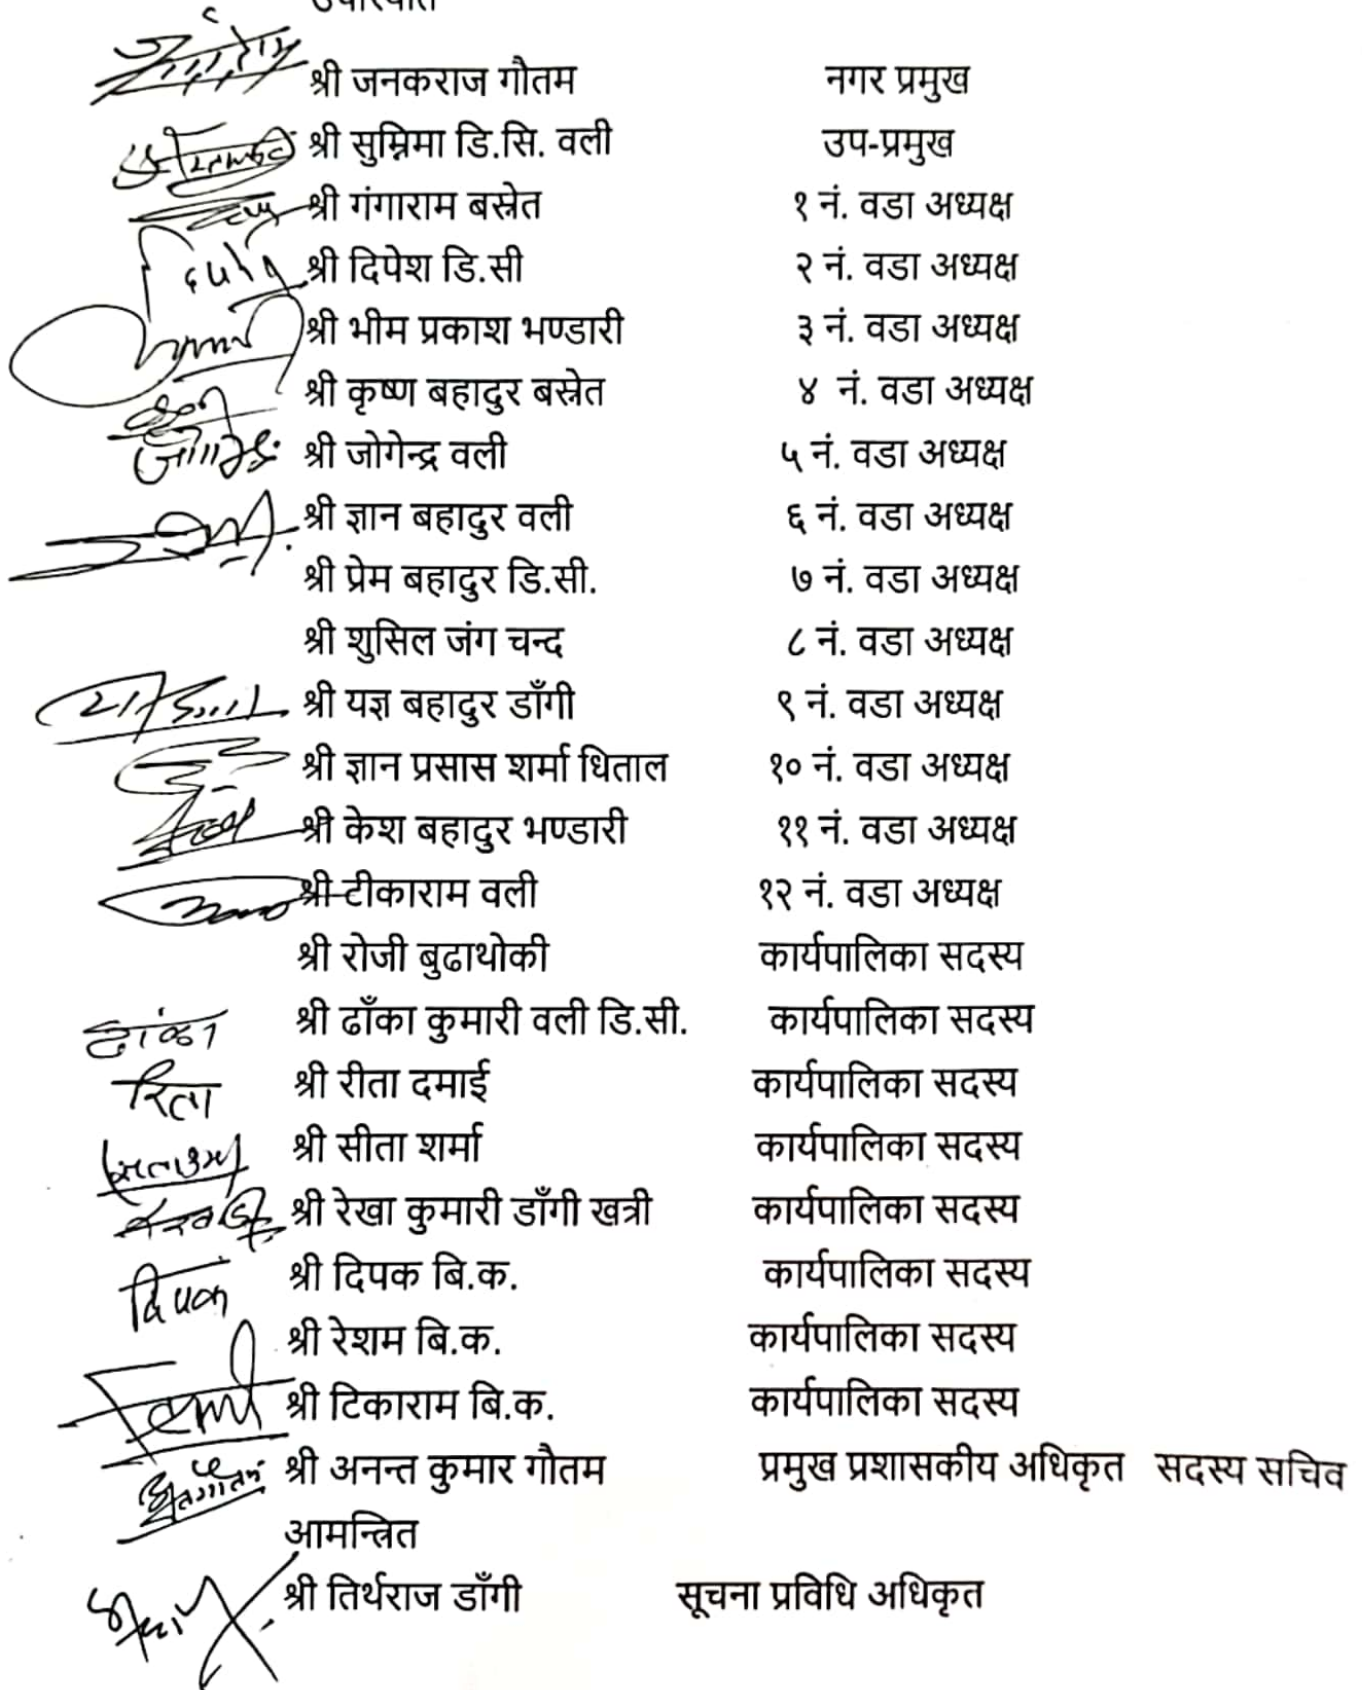 उपस्थिति
श्री जनकराज गौतम नगर प्रमुख
श्री सुम्निमा डि.सि. वली उप-प्रमुख
श्री गंगाराम बस्नेत १ नं. वडा अध्यक्ष
श्री दिपेश डि.सी २ नं. वडा अध्यक्ष
श्री भीम प्रकाश भण्डारी ३ नं. वडा अध्यक्ष
श्री कृष्ण बहादुर बस्नेत ४ नं. वडा अध्यक्ष
श्री जोगेन्द्र वली ५ नं. वडा अध्यक्ष
श्री ज्ञान बहादुर वली ६ नं. वडा अध्यक्ष
श्री प्रेम बहादुर डि.सी. ७ नं. वडा अध्यक्ष
श्री शुसिल जंग चन्द ८ नं. वडा अध्यक्ष
श्री यज्ञ बहादुर डाँगी ९ नं. वडा अध्यक्ष
श्री ज्ञान प्रसास शर्मा धिताल १० नं. वडा अध्यक्ष
श्री केश बहादुर भण्डारी ११ नं. वडा अध्यक्ष
श्री टीकाराम वली १२ नं. वडा अध्यक्ष
श्री रोजी बुढाथोकी कार्यपालिका सदस्य
ढांका श्री ढाँका कुमारी वली डि.सी. कार्यपालिका सदस्य
रिता श्री रीता दमाई कार्यपालिका सदस्य
श्री सीता शर्मा कार्यपालिका सदस्य
श्री रेखा कुमारी डाँगी खत्री कार्यपालिका सदस्य
दिपक श्री दिपक बि.क. कार्यपालिका सदस्य
श्री रेशम बि.क. कार्यपालिका सदस्य
श्री टिकाराम बि.क. कार्यपालिका सदस्य
श्री अनन्त कुमार गौतम प्रमुख प्रशासकीय अधिकृत सदस्य सचिव
आमन्त्रित
श्री तिर्थराज डाँगी सूचना प्रविधि अधिकृत